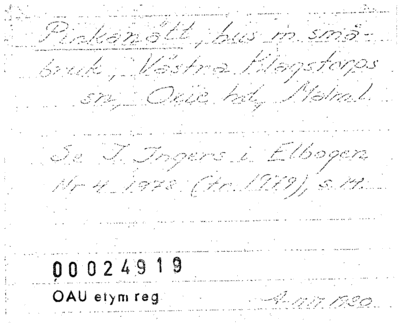 Pinkamått, hus m små-
bruk, Västra Klagstorps
sn, Oxie hd, Malm. l
Se I. Ingers i Elbogen
Nr 4 1978 (tr. 1979), s. 14.
00024919
OAU etym reg
1980